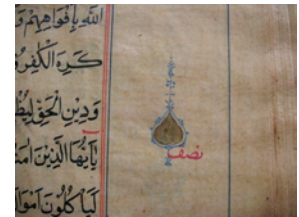 اللَّهِ بِأَفْوَاهِهِمْ وَ
كَرِهَ الْكَٰفِرُو
وَدِينِ الْحَقِّ لِيُظْ
يَٰٓأَيُّهَا الَّذِينَ اٰمَنُ
لَيَأْكُلُونَ أَمْوَا
نصف